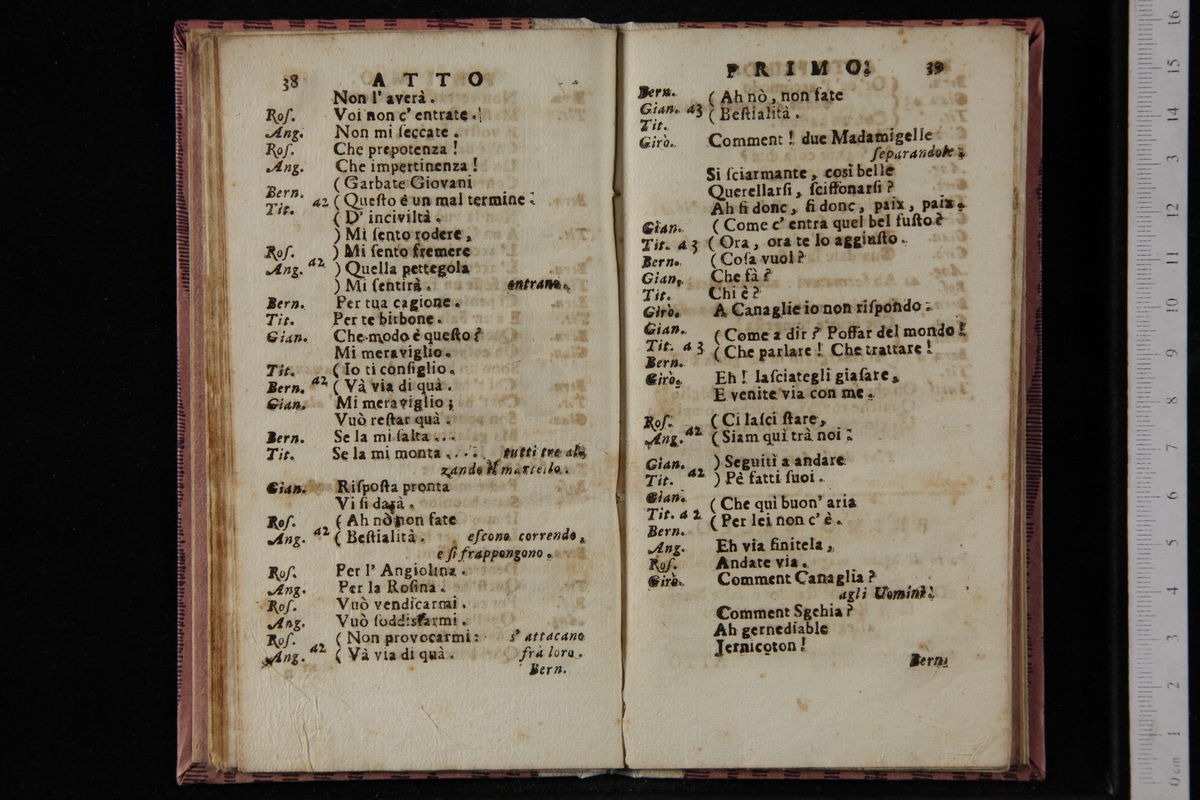 38 ATTO
Non l' averà.
Roſ. Voi non c' entrate.
Ang. Non mi ſeccate.
Roſ. Che prepotenza!
Ang. Che impertinenza!
(Garbate Giovani
Bern. Tit. a2 (Queſto è un mal termine
(D' inciviltà.
) Mi ſento rodere,
Roſ. ) Mi ſento fremere
Ang. a2 ) Quella pettegola
) Mi ſentirà. entrano.
Bern. Per tua cagione.
Tit. Per te birbone.
Gian. Che modo è queſto?
Mi meraviglio.
Tit. (Io ti conſiglio.
Bern. a2 (Và via di quà.
Gian. Mi meraviglio;
Vuò reſtar quà.
Bern. Se la mi ſalta...
Tit. Se la mi monta.... tutti tre al-
zando il martello.
Gian. Riſpoſta pronta
Vi ſi darà.
Roſ. (Ah nò non fate
Ang. a2 (Beſtialità. eſcono correndo,
e ſi frappongono.
Roſ. Per l' Angiolina.
Ang. Per la Roſina.
Roſ. Vuò vendicarmi.
Ang. Vuò ſoddisfarmi.
Roſ. (Non provocarmi: s' attacano
Ang. a2 (Và via di quà. frà loro.
Bern.
PRIMO. 39
Bern. (Ah nò, non fate
Gian. a3 (Beſtialità.
Tit.
Girò. Comment! due Madamigelle
ſeparandole.
Si ſciarmante, così belle
Querellarſi, ſciffonarſi?
Ah fi donc, fi donc, paix, paix.
Gian. (Come c' entra quel bel fuſto?
Tit. a 3 (Ora, ora te lo aggiuſto.
Bern. (Coſa vuol?
Gian. Che fà?
Tit. Chi è?
Girò. A Canaglie io non riſpondo.
Gian. (Come a dir? Poffar del mondo!
Tit. a 3 (Che parlare! Che trattare!
Bern.
Girò. Eh! laſciategli giaſare,
E venite via con me.
Roſ. (Ci laſci ſtare,
Ang. a2 (Siam quì trà noi.
Gian. ) Seguiti a andare
Tit. a2 ) Pè fatti ſuoi.
Gian. (Che quì buon' aria
Tit. a 2 (Per lei non c' è.
Bern.
Ang. Eh via finitela,
Roſ. Andate via.
Girò. Comment Canaglia?
agli Uomini.
Comment Sgehia?
Ah gernediable
Jernicoton!
Bern.
16
15
14
13
12
11
10
9
8
7
6
5
4
3
2
1
0 cm